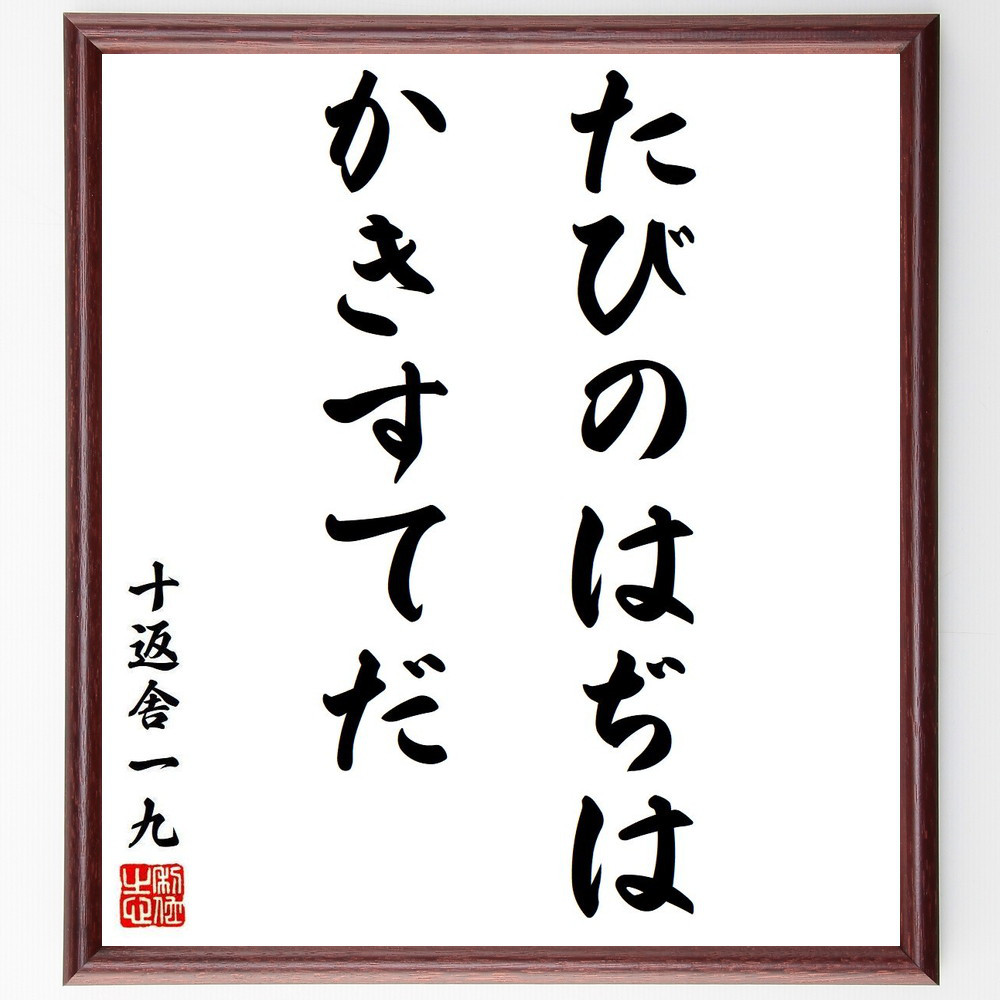 たびのはぢは
かきすてだ
十返舎一九